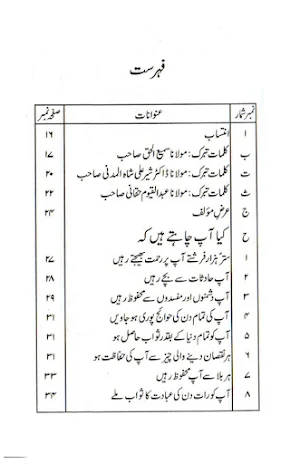 فہرست
نمبر شمار عنوانات صفحہ نمبر
ا انتساب ۱۶
ب کلمات تبرک: مولانا سمیع الحق صاحب ۱۷
ت کلمات تبرک: مولانا ڈاکٹر شیر علی شاہ المدنی صاحب ۲۰
ث کلمات تبرک: مولانا عبدالقیوم حقانی صاحب ۲۲
ج عرض مؤلف ۲۴
ح کیا آپ چاہتے ہیں کہ
۱ ستر ہزار فرشتے آپ پر رحمت بھیجتے رہیں ۲۷
۲ آپ حادثات سے بچے رہیں ۲۸
۳ آپ دشمنوں اور مفسدوں سے محفوظ رہیں ۲۹
۴ آپ کی تمام دن کی حوائج پوری ہو جاویں ۳۱
۵ آپ کو تمام دنیا کے بقدر ثواب حاصل ہو ۳۱
۶ ہر نقصان دینے والی چیز سے آپ کی حفاظت ہو ۳۱
۷ ہر بلا سے آپ محفوظ رہیں ۳۳
۸ آپ کو رات دن کی عبادت کا ثواب ملے ۳۴